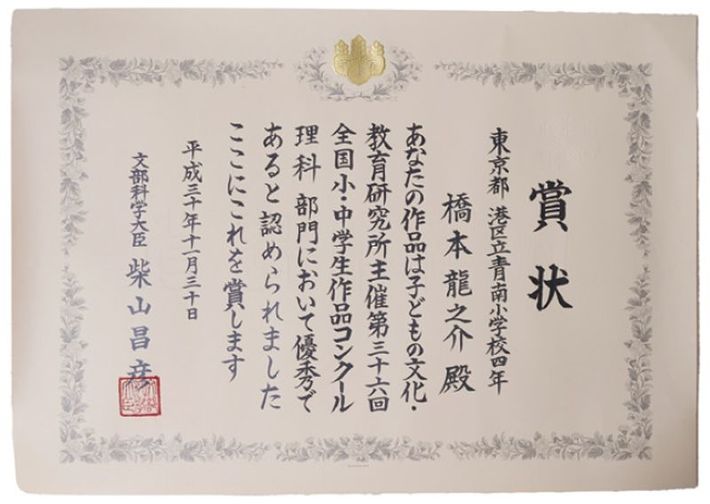 賞状
東京都 港区立青南小学校四年
橋本龍之介殿
あなたの作品は子どもの文化・
教育研究所主催第三十六回
全国小・中学生作品コンクール
理科 部門において優秀で
あると認められました
ここにこれを賞します
平成三十年十一月三十日
文部科学大臣 柴山昌彦